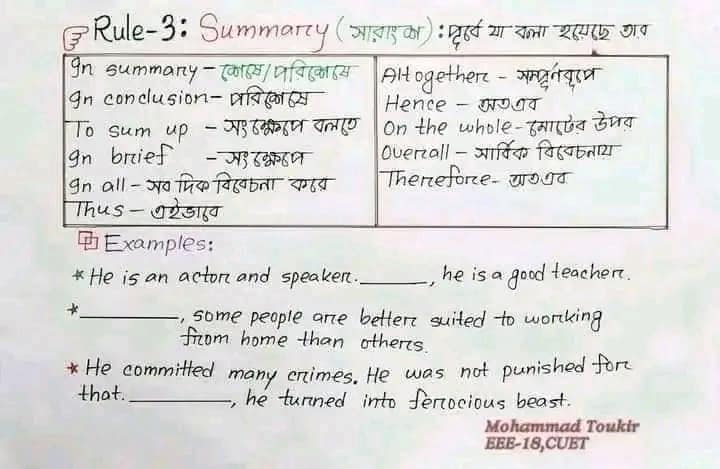 Rule-3: Summary (সারাংশ) : পূর্বে যা বলা হয়েছে তার
In summary - শেষে/পরিশেষে
In conclusion - পরিশেষে
To sum up - সংক্ষেপে বলতে
In brief - সংক্ষেপে
In all - সব দিক বিবেচনা করে
Thus - এইভাবে
Altogether - সম্পূর্নরূপে
Hence - অতএব
On the whole - মোটের উপর
Overall - সার্বিক বিবেচনায়
Therefore - অতএব
Examples:
* He is an actor and speaker. ______, he is a good teacher.
* ______, some people are better suited to working
from home than others.
* He committed many crimes. He was not punished for
that. ______, he turned into ferocious beast.
Mohammad Toukir
EEE-18,CUET